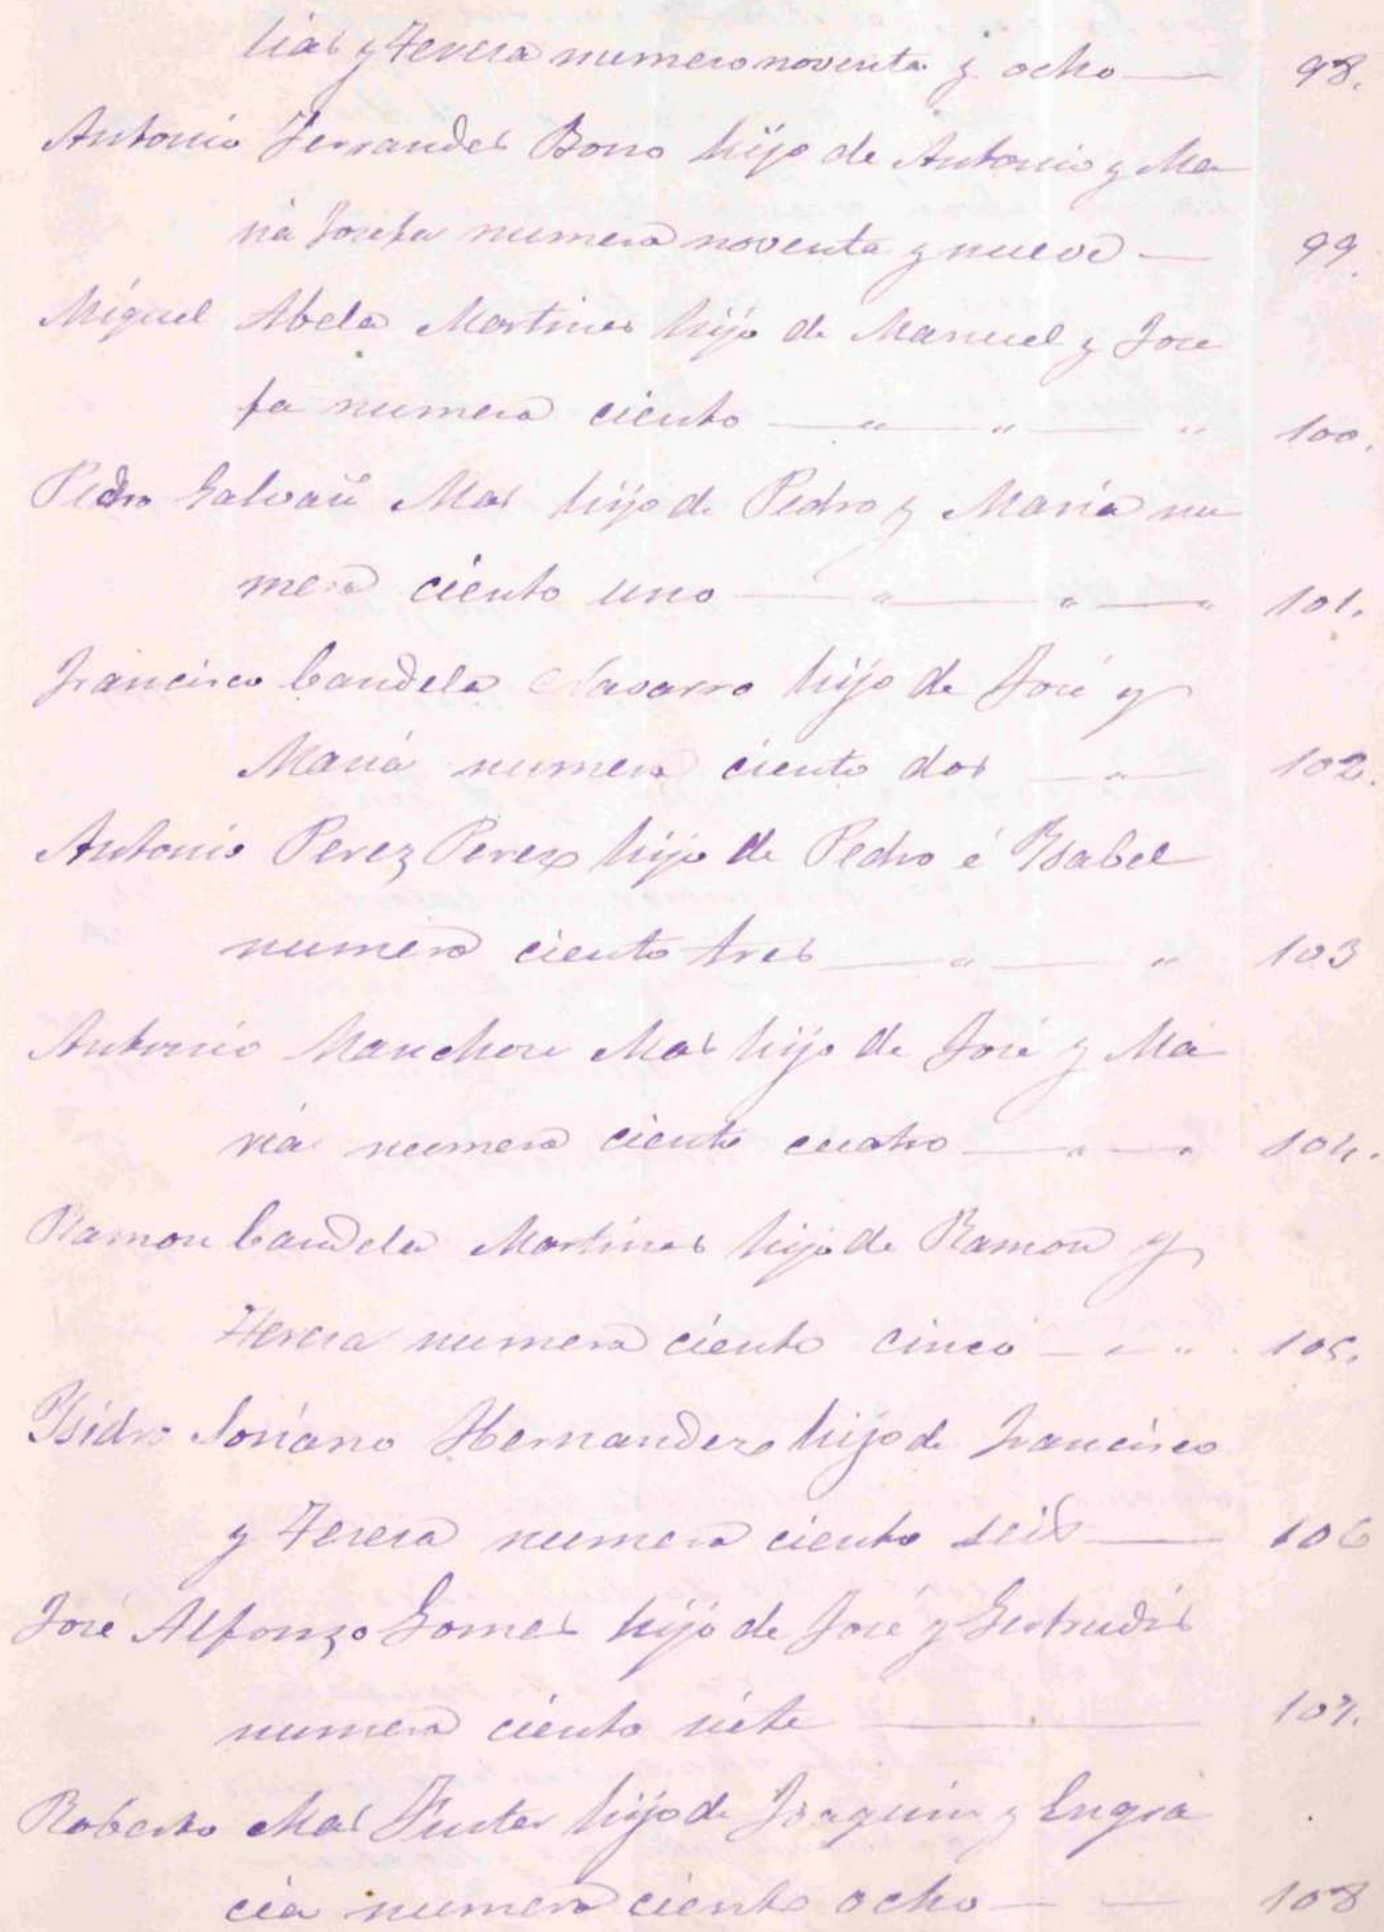 lias y Teresa numero noventa y ocho — 98.
Antonio Fernandes Bono hijo de Antonio y Ma
ria Josefa numero noventa y nueve — 99.
Miguel Abela Martines hijo de Manuel y Jose
fa numero ciento — " — " — " 100.
Pedro Galvañ Mas hijo de Pedro y Maria nu
mero ciento uno — " — " — " 101.
Francisco Candela Navarro hijo de José y
Maria numero ciento dos — " — 102.
Antonio Perez Perez hijo de Pedro é Ysabel
numero ciento tres — " — " 103
Antonio Manchon Mas hijo de José y Ma
ria numero ciento cuatro — " — " 104.
Ramon Candela Martines hijo de Ramon y
Teresa numero ciento cinco — " — " 105.
Ysidro Soriano Hernandez hijo de Francisco
y Teresa numero ciento seis — 106
José Alfonzo Gomes hijo de José y Gertrudis
numero ciento siete — 107.
Roberto Mas Fuster hijo de Joaquin y Engra
cia numero ciento ocho — — 108